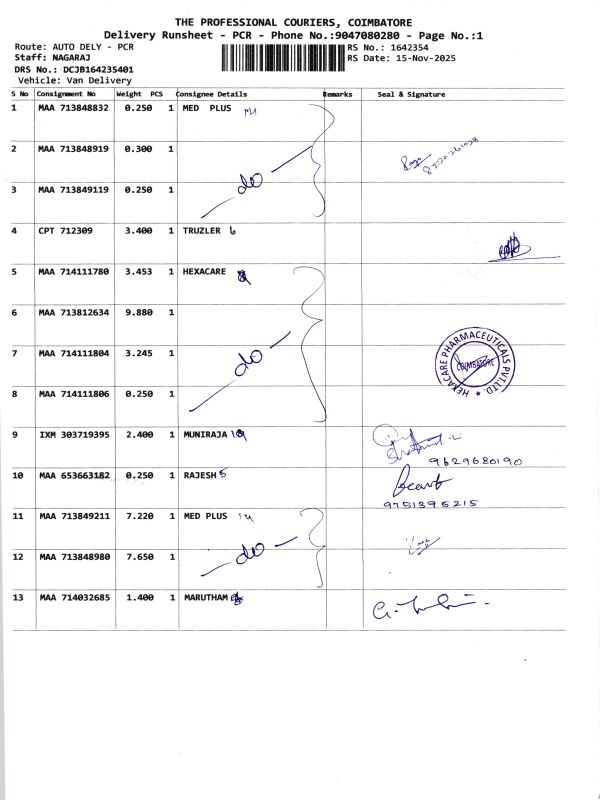 THE PROFESSIONAL COURIERS, COIMBATORE
Delivery Runsheet - PCR - Phone No.:9047080280 - Page No.:1
Route: AUTO DELY - PCR RS No.: 1642354
Staff: NAGARAJ RS Date: 15-Nov-2025
DRS No.: DCJB164235401
Vehicle: Van Delivery
S No Consignment No Weight PCS Consignee Details Remarks Seal & Signature
1 MAA 713848832 0.250 1 MED PLUS 14
2 MAA 713848919 0.300 1
3 MAA 713849119 0.250 1 - do -
4 CPT 712309 3.400 1 TRUZLER 6
5 MAA 714111780 3.453 1 HEXACARE
6 MAA 713812634 9.880 1
7 MAA 714111804 3.245 1 - do - HEXACARE PHARMACEUTICALS PVT.LTD. ★ COIMBATORE
8 MAA 714111806 0.250 1
9 IXM 303719395 2.400 1 MUNIRAJA 9629680190
10 MAA 653663182 0.250 1 RAJESH 5
9751395215
11 MAA 713849211 7.220 1 MED PLUS 14
12 MAA 713848980 7.650 1 - do -
13 MAA 714032685 1.400 1 MARUTHAM